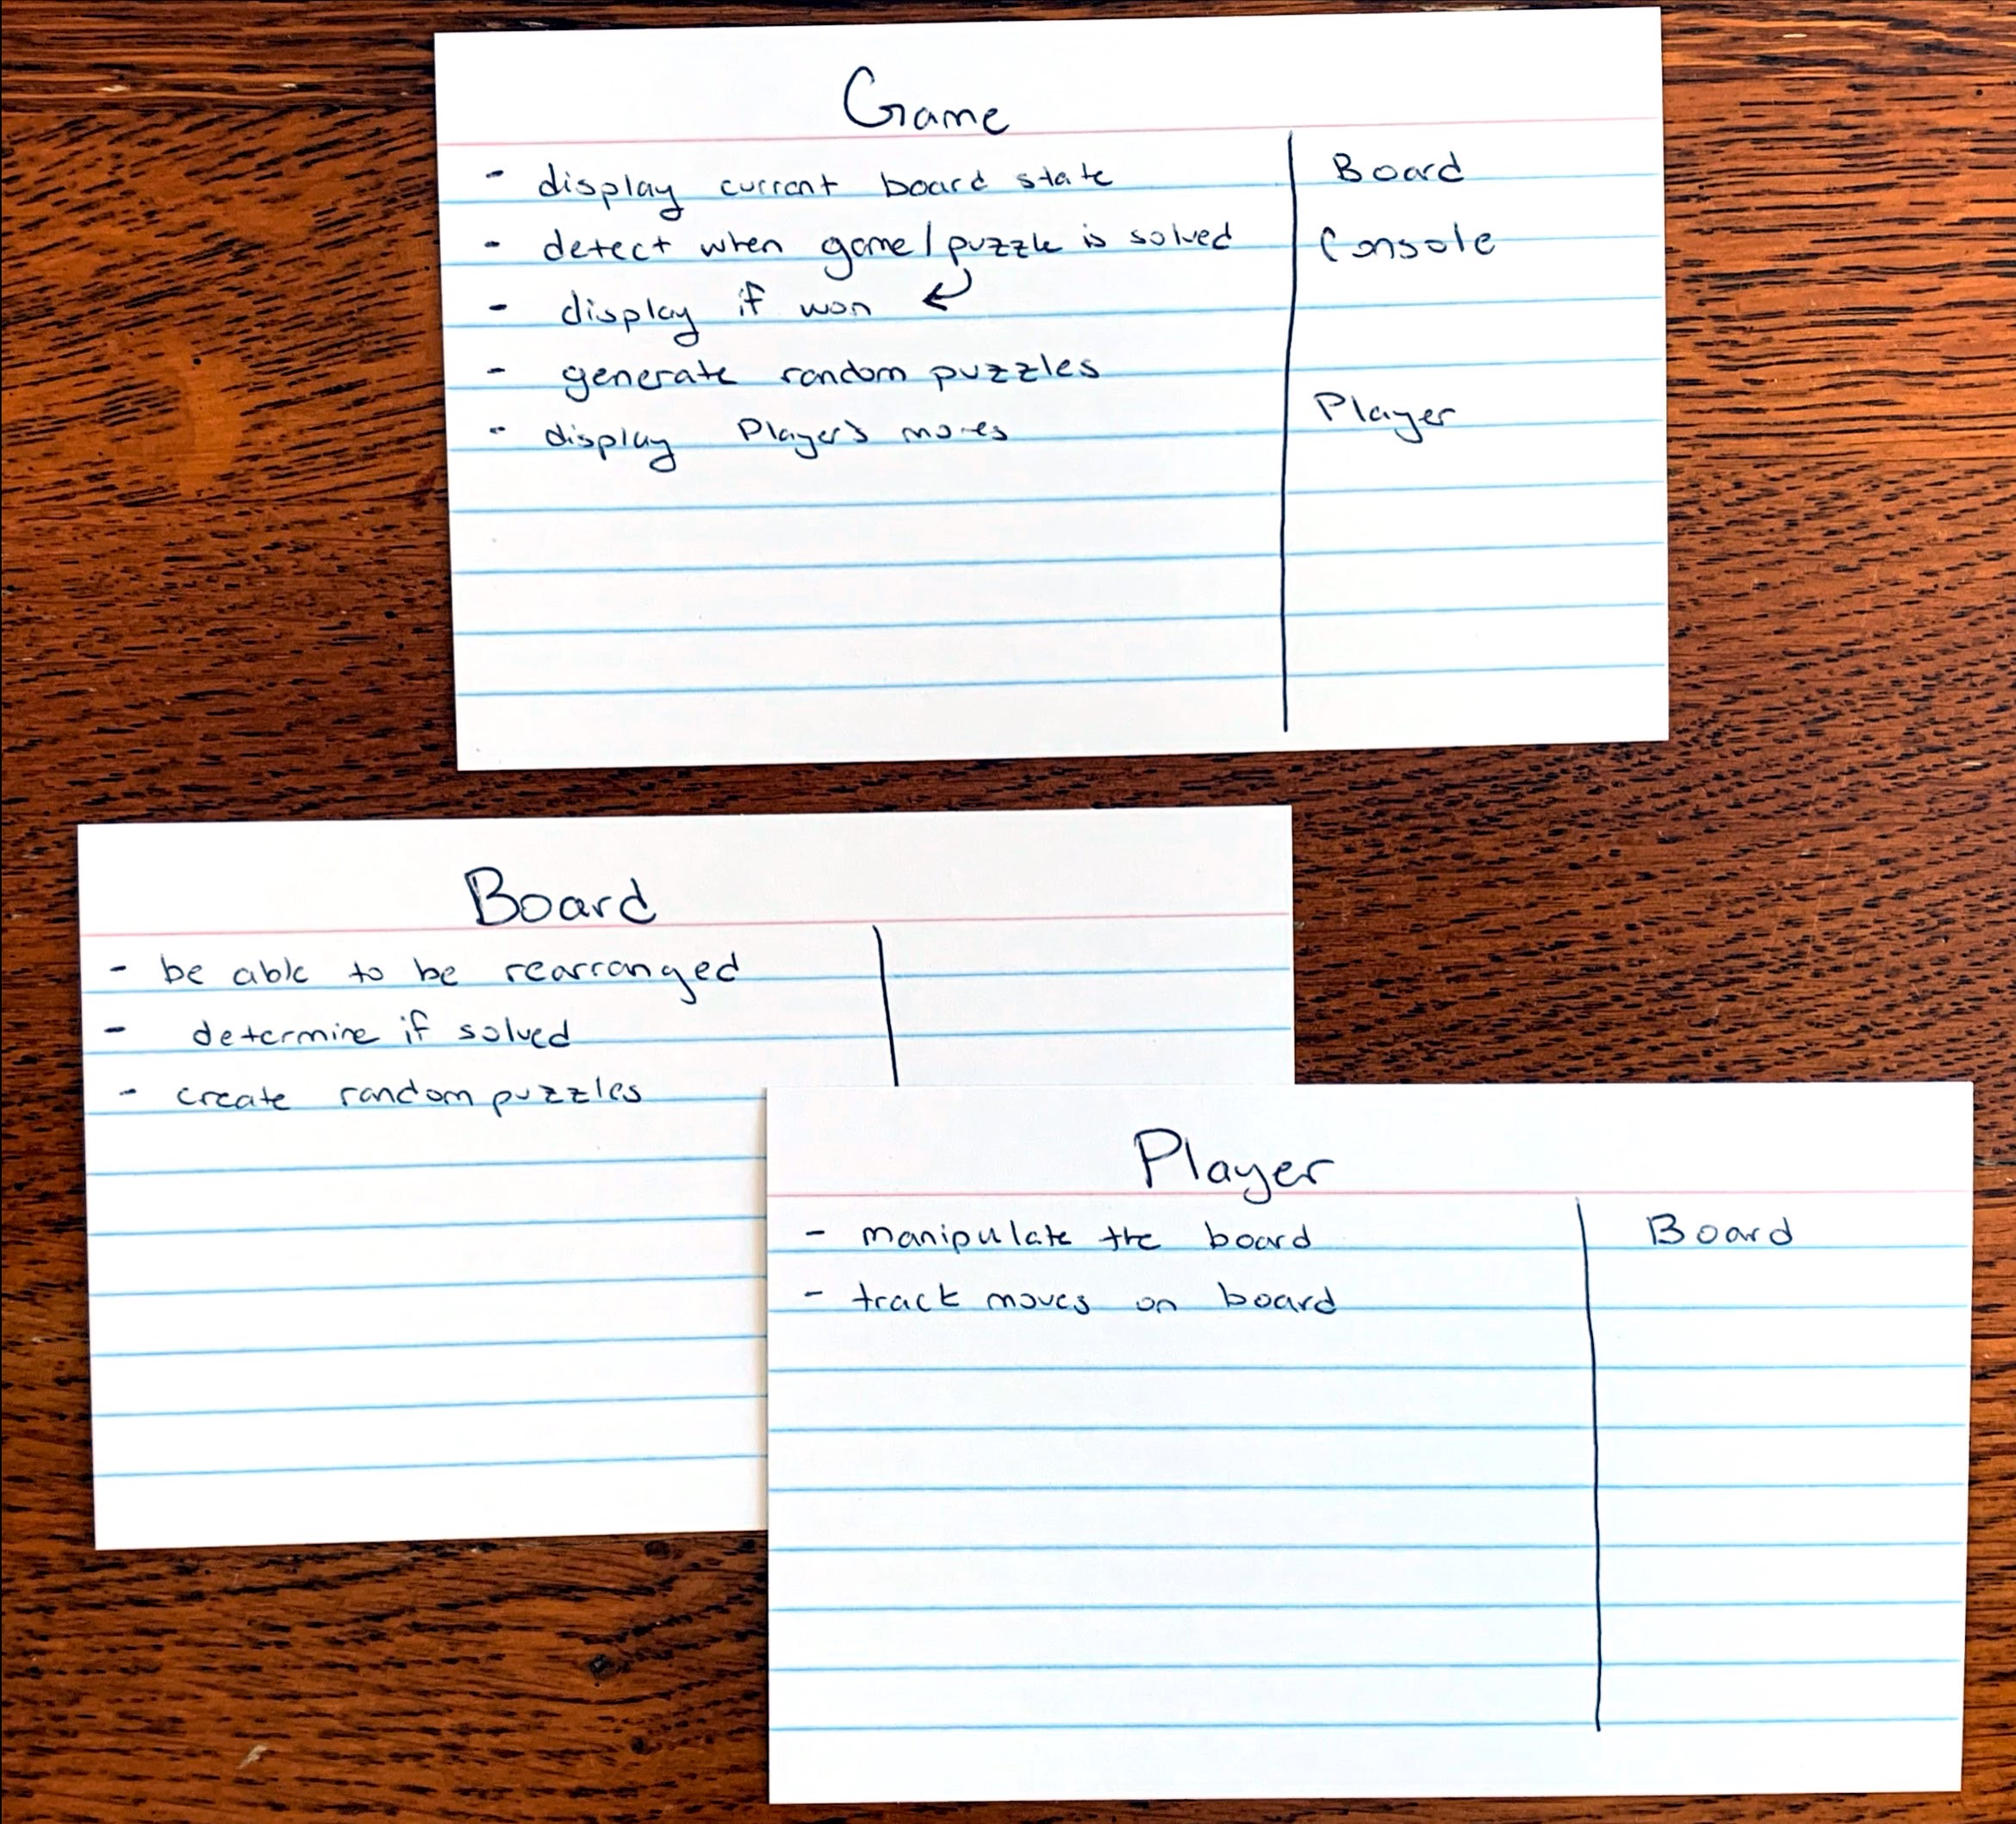 Game
- display current board state
Board
- detect when game/puzzle is solved
Console
- display if won
- generate random puzzles
- display Player's moves
Player
Board
- be able to be rearranged
- determine if solved
- create random puzzles
Player
- manipulate the board
Board
- track moves on board